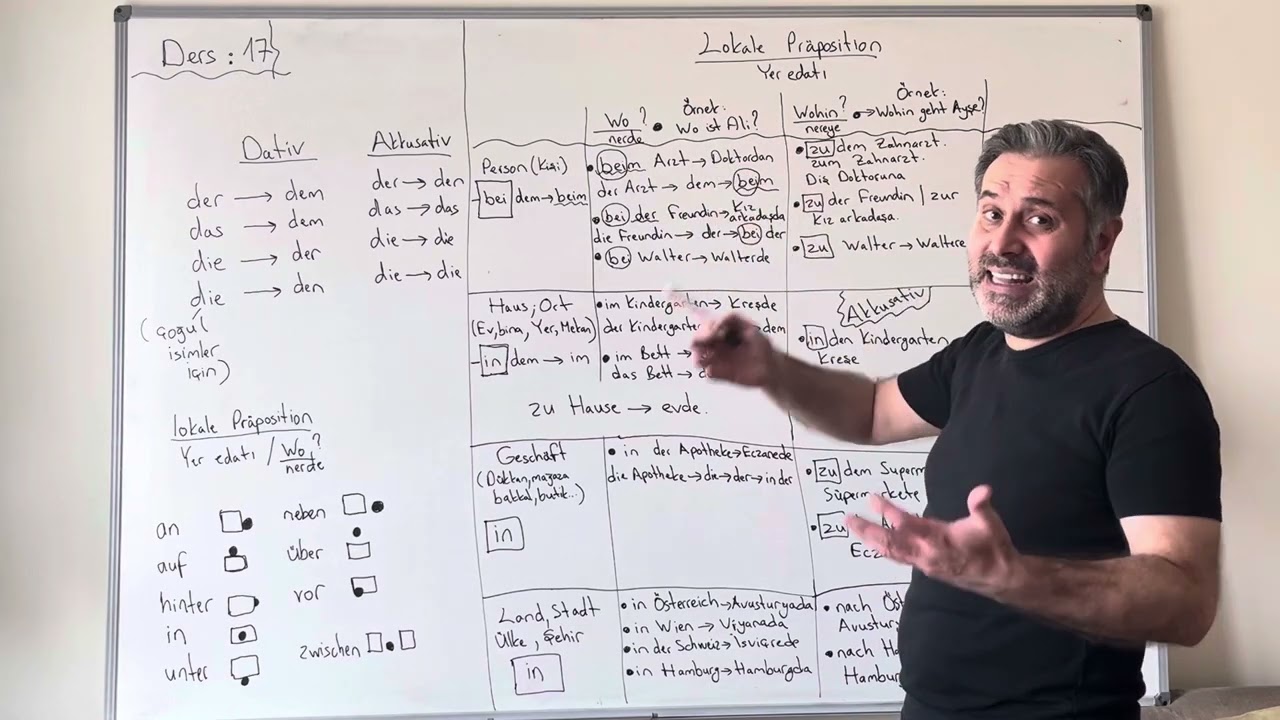 Ders : 17
Dativ
der → dem
das → dem
die → der
die → den
(çoğul
isimler
için)
Akkusativ
der → den
das → das
die → die
die → die
lokale Präposition
Yer edatı / Wo?
nerde
an
auf
hinter
in
unter
neben
über
vor
zwischen
Lokale Präposition
Yer edatı
Wo?
nerde
Örnek:
Wo ist Ali?
Wohin?
nereye
Örnek:
→ Wohin geht Ayşe?
Person (Kişi)
- bei dem → beim
• beim Arzt → Doktordan
der Arzt → dem → beim
• bei der Freundin → Kız
arkadaşda
die Freundin → der → bei der
• bei Walter → Walterde
• zu dem Zahnarzt.
zum Zahnarzt.
Diş Doktoruna
• zu der Freundin / zur
Kız arkadaşa.
• zu Walter → Waltere
Haus, Ort
(Ev, bina, Yer, Mekan)
- in dem → im
• im Kindergarten → Kreşde
der Kindergarten dem
• im Bett →
das Bett →
Akkusativ
• in den Kindergarten
Kreşe
zu Hause → evde.
Geschäft
(Dükkan, mağaza
bakkal, butik...)
in
• in der Apotheke → Eczanede
die Apotheke → die → der → in der
• zu dem Superm
Süpermarkete
• zu
Ecz
Land, Stadt
Ülke, Şehir
in
• in Österreich → Avusturyada
• in Wien → Viyanada
• in der Schweiz → İsviçrede
• in Hamburg → Hamburgda
• nach Öst
Avustury
• nach Ha
Hambur